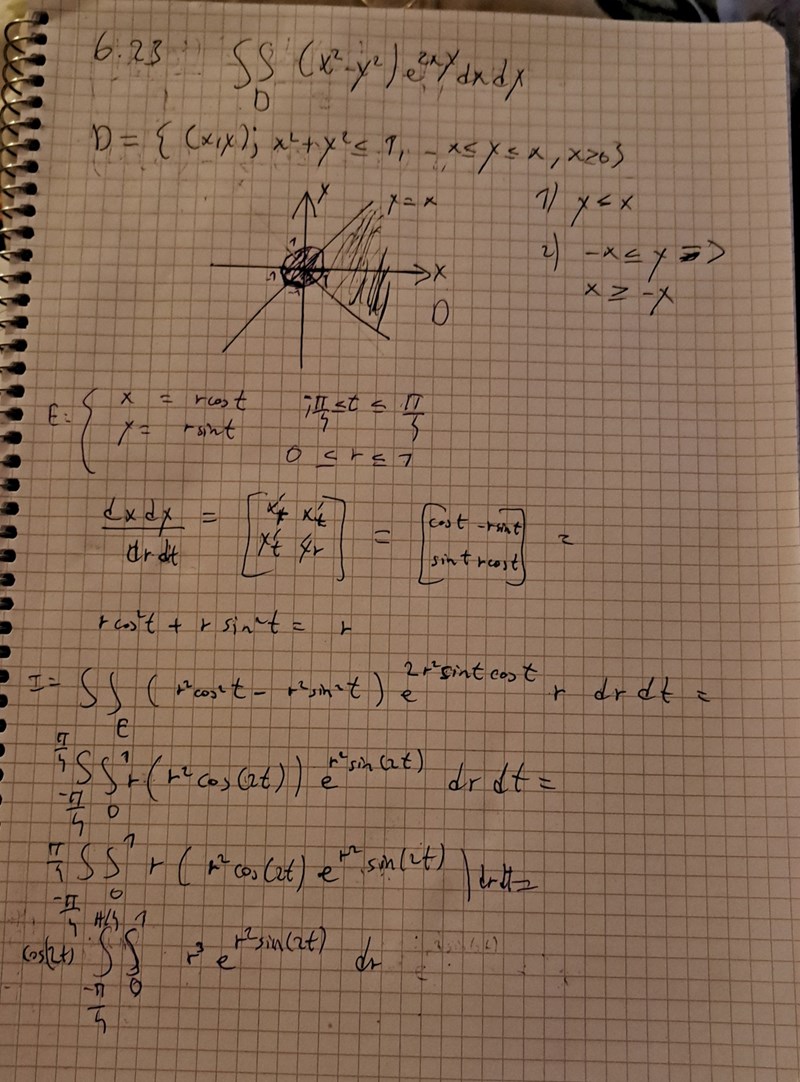 6.23 ∫∫ (x²-y²) e^{2xy} dx dy
D
D = { (x,y); x²+y² ≤ 1, -x ≤ y ≤ x, x≥0}
y y = x 1) y < x
2) -x ≤ y =>
x
D x ≥ -y
E: { x = r cos t -π/4 ≤ t ≤ π/4
y = r sin t
0 ≤ r ≤ 1
dx dy / dr dt = [ ] = [ cos t -r sin t ; sin t r cos t ] =
r cos²t + r sin²t = r
I = ∫∫_E ( r²cos²t - r²sin²t ) e^{2r² sin t cos t} r dr dt =
∫_{-π/4}^{π/4} ∫_0^1 r ( r² cos(2t)) e^{r² sin(2t)} dr dt =
∫_{-π/4}^{π/4} ∫_0^1 r ( r² cos(2t) e^{r² sin(2t)} ) dr dt =
cos(2t) ∫_{-π/4}^{π/4} ∫_0^1 r³ e^{r² sin(2t)} dr